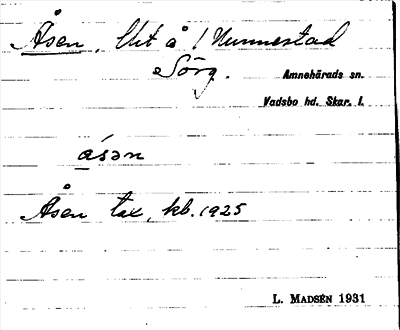 Åsen, Utt å / Nunnestad
Sörg.
Amnehärads sn.
Vadsbo hd. Skar. l.
åsən
Åsen tax, kb. 1925
L. MADSÉN 1931